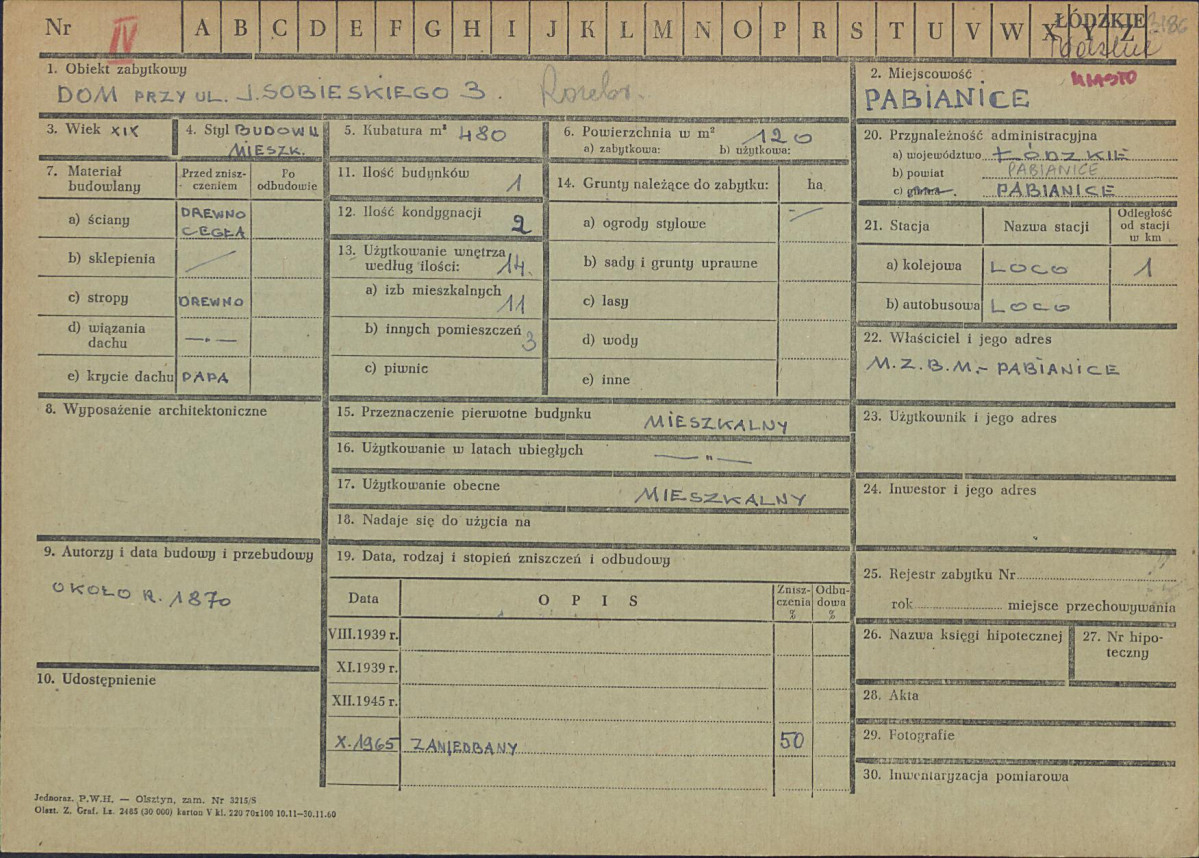 Nr IV A B C D E F G H I J K L M N O P R S T U V W X Y Z
ŁÓDZKIE 3186
MIASTO
1. Obiekt zabytkowy
DOM PRZY UL. J. SOBIESKIEGO 3. Rozebr.
2. Miejscowość
PABIANICE
3. Wiek XIX
4. Styl BUDOWN.
MIESZK.
5. Kubatura m³ 480
6. Powierzchnia w m² 120
a) zabytkowa: b) użytkowa:
7. Materiał budowlany
Przed znisz-
czeniem
Po
odbudowie
a) ściany DREWNO
CEGŁA
b) sklepienia —
c) stropy DREWNO
d) wiązania
dachu —„—
e) krycie dachu PAPA
8. Wyposażenie architektoniczne
9. Autorzy i data budowy i przebudowy
OKOŁO R. 1870
10. Udostępnienie
11. Ilość budynków 1
12. Ilość kondygnacji 2
13. Użytkowanie wnętrza
według ilości: 14.
a) izb mieszkalnych 11
b) innych pomieszczeń 3
c) piwnic
14. Grunty należące do zabytku: ha
a) ogrody stylowe —
b) sady i grunty uprawne
c) lasy
d) wody
e) inne
15. Przeznaczenie pierwotne budynku MIESZKALNY
16. Użytkowanie w latach ubiegłych —„—
17. Użytkowanie obecne MIESZKALNY
18. Nadaje się do użycia na
19. Data, rodzaj i stopień zniszczeń i odbudowy
Data OPIS Znisz-
czenia
% Odbu-
dowa
%
VIII.1939 r.
XI.1939 r.
XII.1945 r.
X.1965 ZANIEDBANY 50
20. Przynależność administracyjna
a) województwo ŁÓDZKIE
b) powiat PABIANICE
c) gmina PABIANICE
21. Stacja Nazwa stacji Odległość
od stacji
w km
a) kolejowa LOCO 1
b) autobusowa LOCO
22. Właściciel i jego adres
M.Z.B.M.- PABIANICE
23. Użytkownik i jego adres
24. Inwestor i jego adres
25. Rejestr zabytku Nr
rok miejsce przechowywania
26. Nazwa księgi hipotecznej
27. Nr hipo-
teczny
28. Akta
29. Fotografie
30. Inwentaryzacja pomiarowa
Jednoraz. P.W.H. — Olsztyn, zam. Nr 3215/S
Olszt. Z. Graf. Lz. 2485 (30 000) karton V kl. 220 70x100 10.11—30.11.60